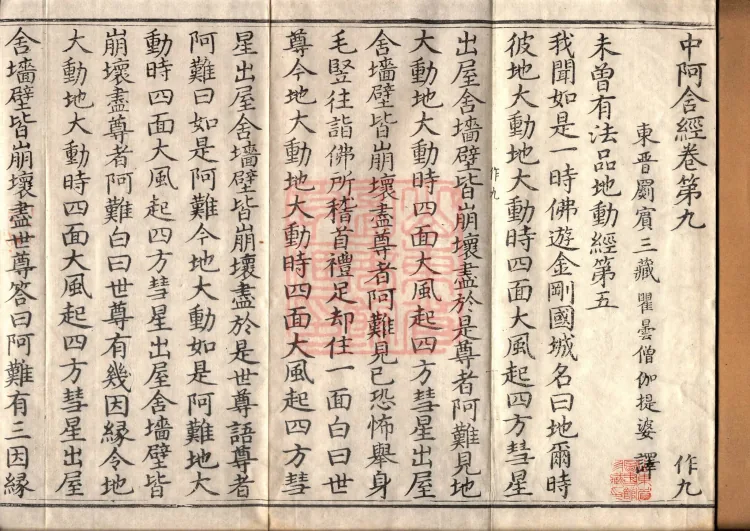 中阿含經卷第九 作九
東晉罽賓三藏瞿曇僧伽提婆譯
未曾有法品地動經第五
我聞如是一時佛遊金剛國城名曰地爾時
彼地大動地大動時四面大風起四方彗星
作九
出屋舍墻壁皆崩壞盡於是尊者阿難見地
大動地大動時四面大風起四方彗星出屋
舍墻壁皆崩壞盡尊者阿難見已恐怖舉身
毛竪往詣佛所稽首禮足却住一面白曰世
尊今地大動地大動時四面大風起四方彗
星出屋舍墻壁皆崩壞盡於是世尊語尊者
阿難曰如是阿難今地大動如是阿難地大
動時四面大風起四方彗星出屋舍墻壁皆
崩壞盡尊者阿難白曰世尊有幾因緣令地
大動地大動時四面大風起四方彗星出屋
舍墻壁皆崩壞盡世尊答曰阿難有三因緣